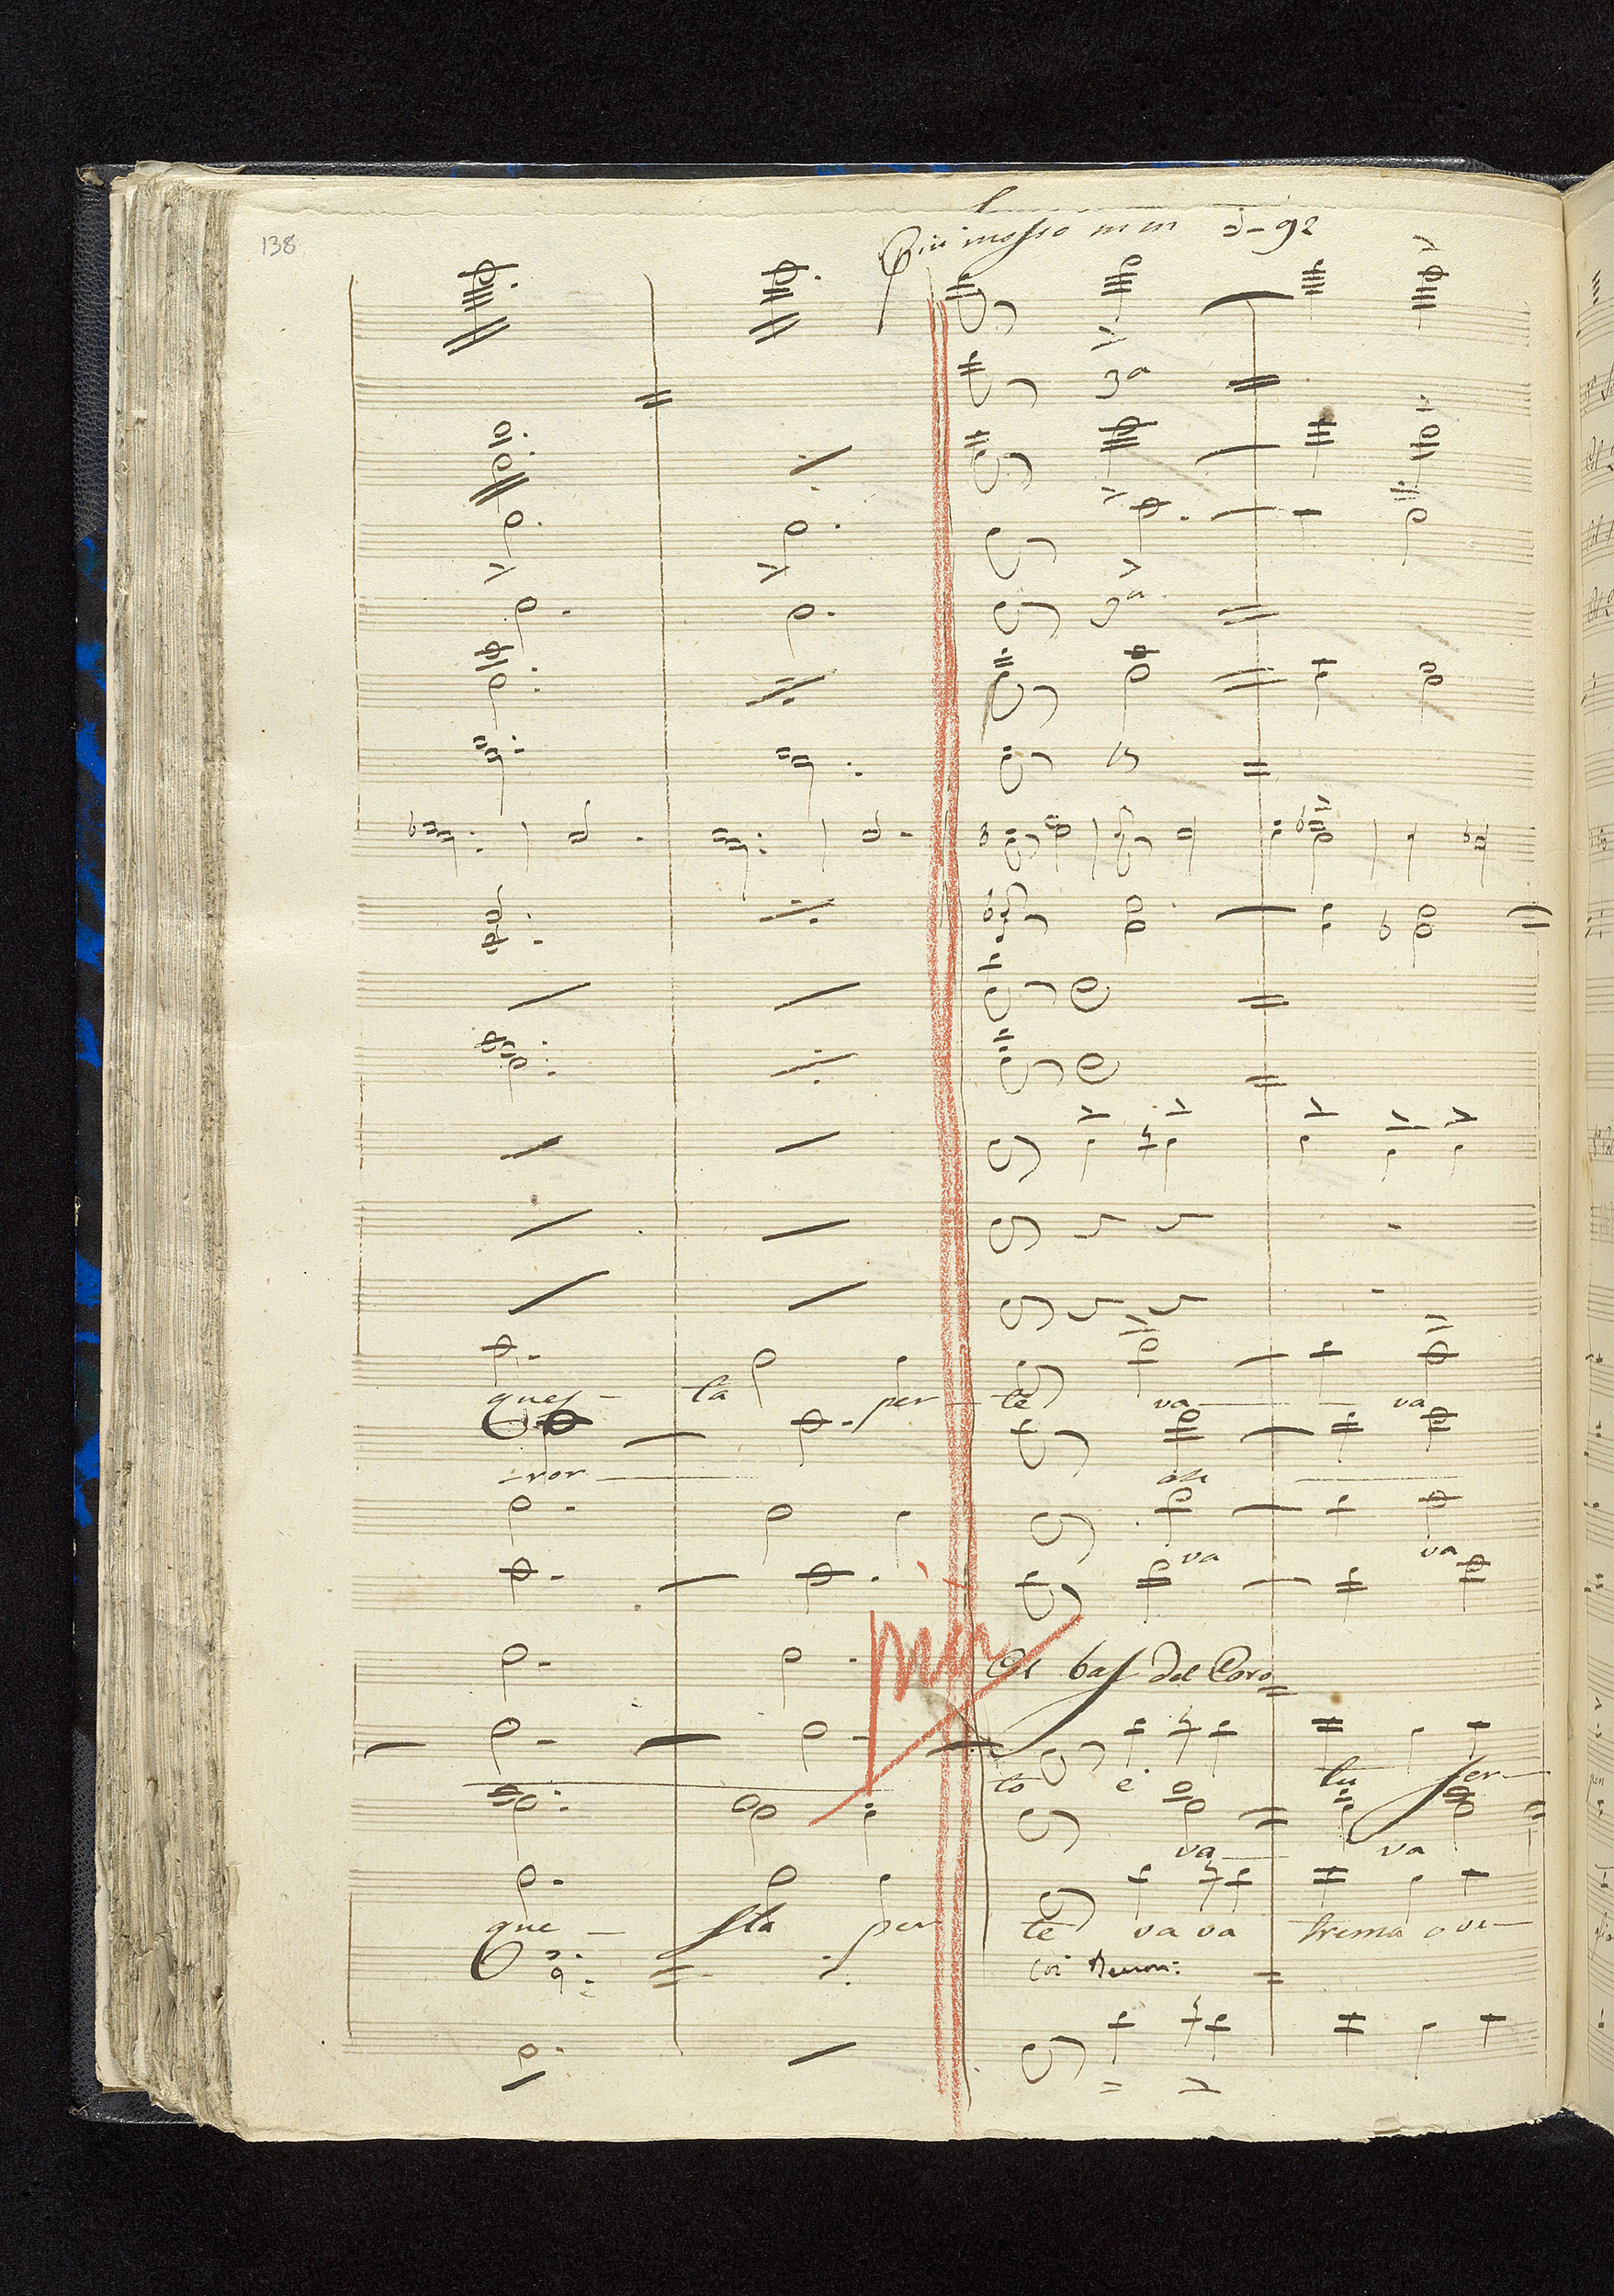 138
Piu mosso mm = 92
3a
3a
ques - ta per te va va
- ror
va va
Col bas del Coro
to e tu
va va
que - sta per te va va trema o vi -